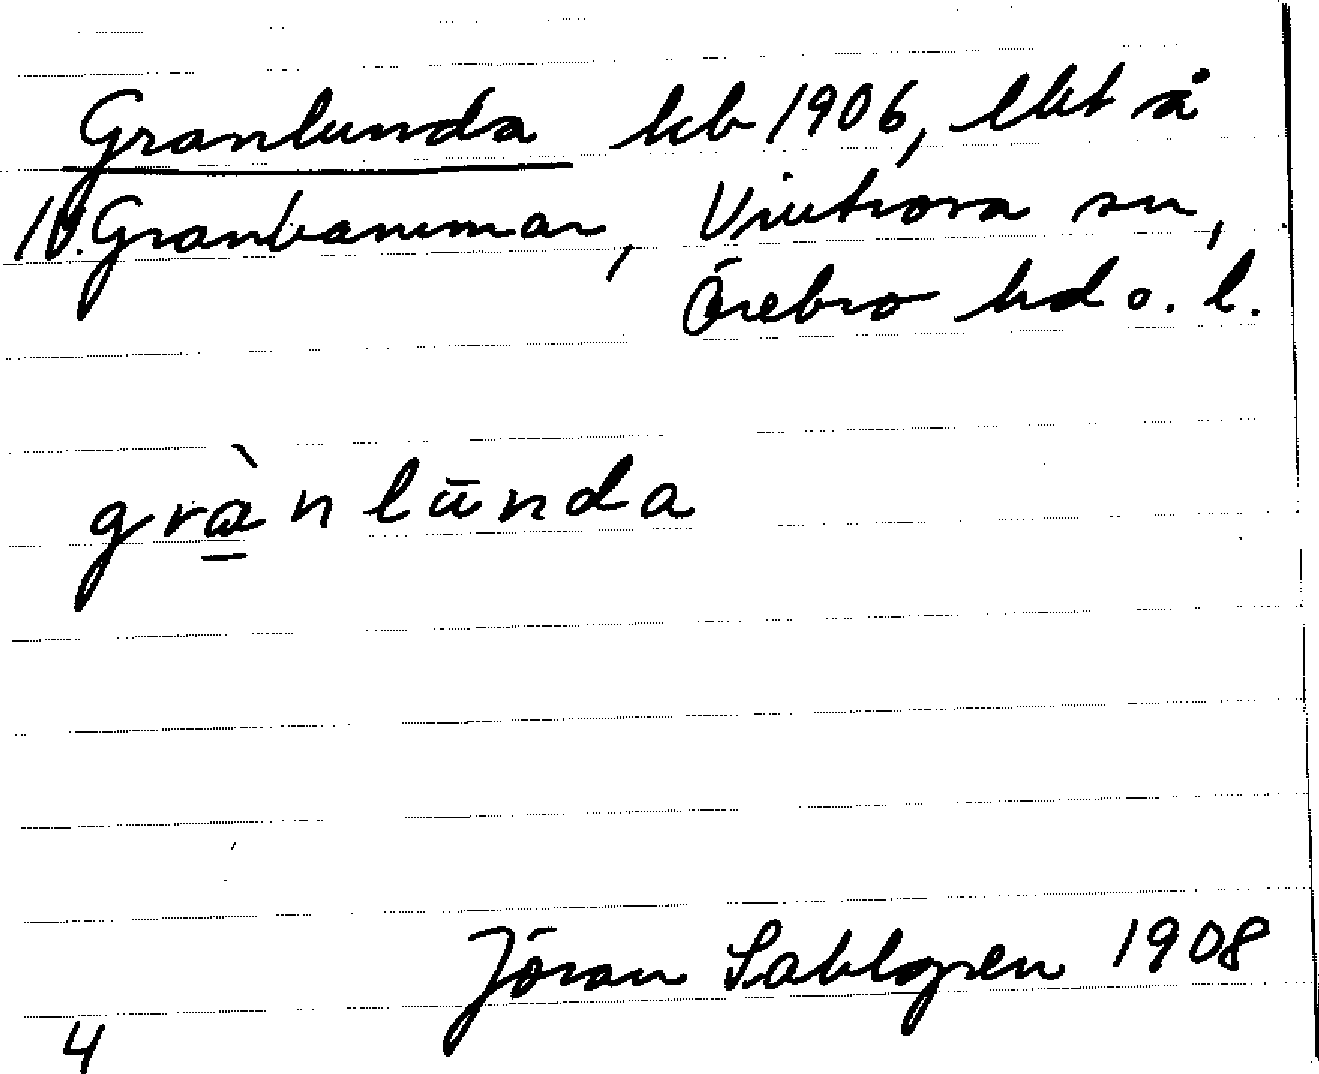 Granlunda kb 1906, lht å
N. Granhammar, Vintrosa sn,
Örebro hd o. l.
grànlūnda
Jöran Sahlgren 1908
4